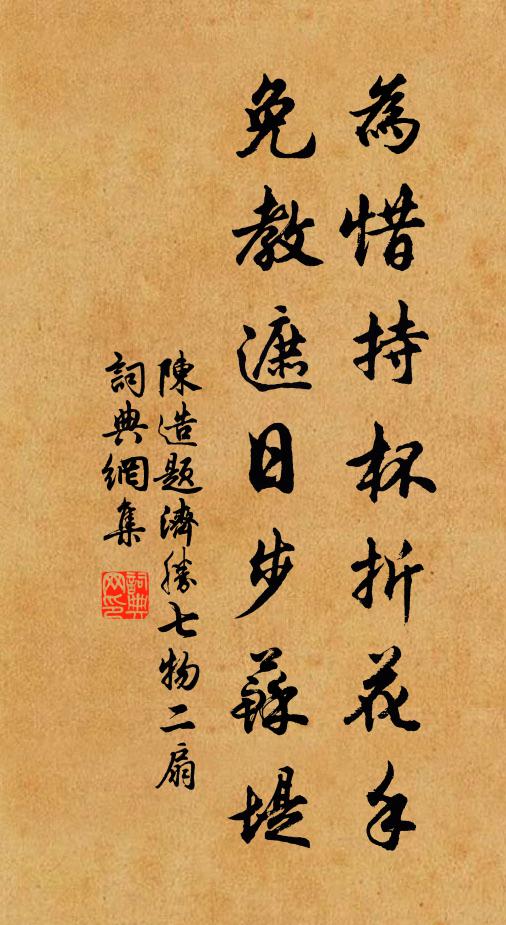 為惜持杯折花手
免教遮日步蘇堤
陳造題濟勝七物二扇
詞典網集
詞典
网印